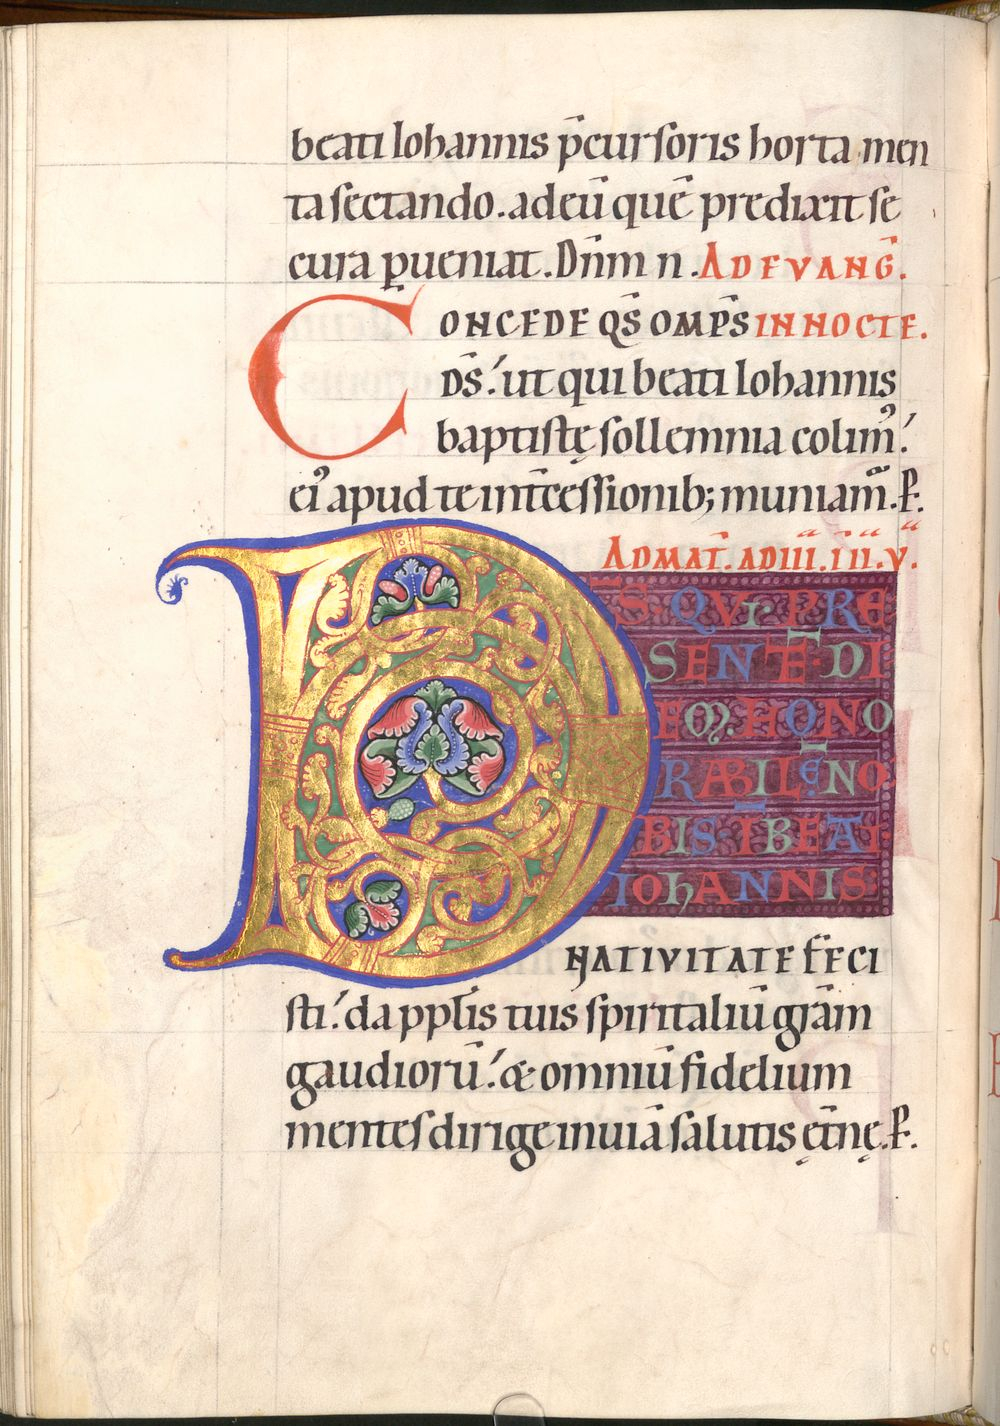 beati Iohannis p̄cursoris horta men
ta sectando. ad eū quē predixit se
cura ꝑueniat. Dn̄m n. AD EVANG̅.
CONCEDE QS̄ OMP̄S IN NOCTE.
DS̄. ut qui beati Iohannis
baptistę sollemnia colim᷒.
ei᷒ apud te int̄cessionib; muniam᷒. P̱.
AD MAT̄. AD III. VI. VIIII. V.
DS̄ QVI PRE
SENTĒ DI
EM HONO
RABILĒ NO
BIS Ī BEATI
IOhANNIS
NATIVITATE FECI
sti. da pplīs tuis spiritaliū grām
gaudiorū. & omniū fidelium
mentes dirige in uiā salutis ęt̄nę. P̱.